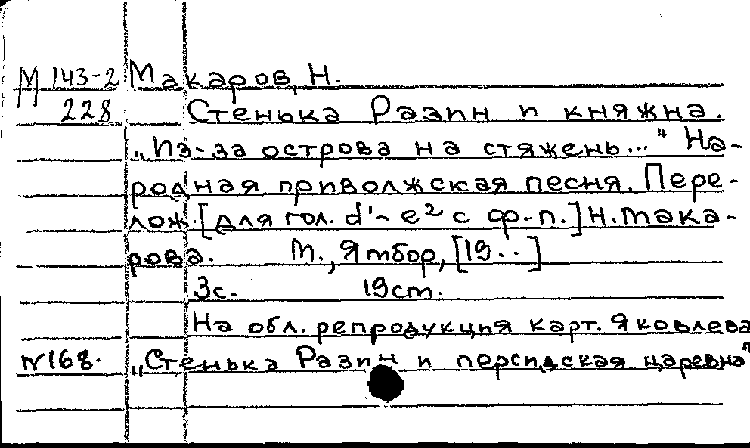 М 143-2 Макаров, Н.
228 Стенька Разин и княжна.
„Из-за острова на стяжень..." На-
родная приволжская песня. Пере-
лож. [для гол. d'~ e² с ф-п.] Н. Мака-
рова. М., Ямбор, [19..]
3с. 19ст.
На обл. репродукция карт. Яковлева
N168. „Стенька Разин и персидская царевна"